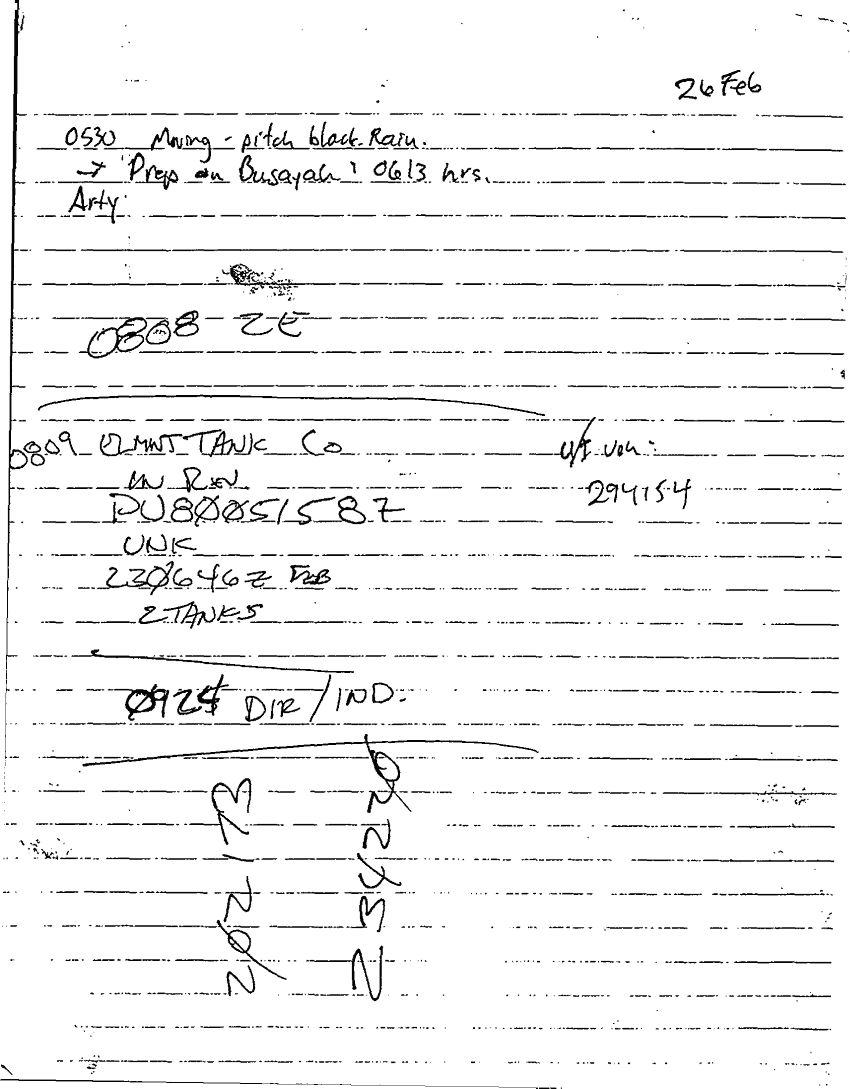 26 Feb
0530 Moving - pitch black. Rain.
→ "Prep on Busayah" 0613 hrs.
Arty
0808 ZE
0809 ELMNT TANK Co
IN REV
PU80051587
UNK
230646Z FEB
2 TANKS
U/I veh:
294154
0924 DIR/IND.
202173
234220